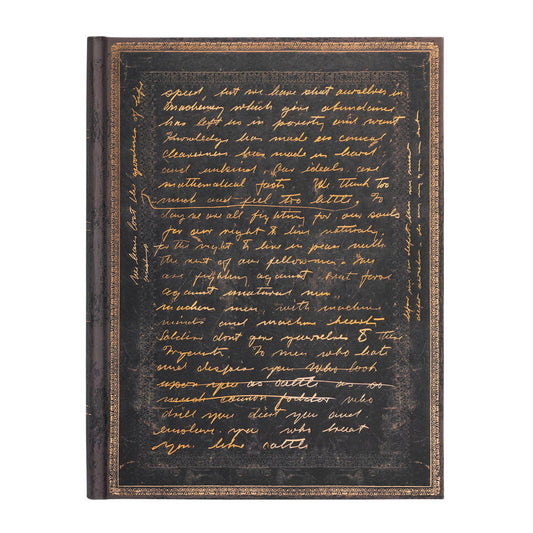 speed but we have shut ourselves in
machinery which gives abundance
has left us in poverty and want
Knowledge has made us
cleverness has made us hard
and unkind. Our ideals are
mathematical facts. We think too
much and feel too little. To
day we are all fighting for our souls
for our right to live naturally
for the right to live in peace with
the rest of our fellow men. Men
are fighting against that force
against unatural men.
machine men, with machine
minds and machine hearts
Soldiers dont give yourselves to these
To men who hate
and despise you who look
upon you as cattle as so
much cannon fodder who
drill you diet you and
enslave you who treat
you like cattle
We have lost the of life